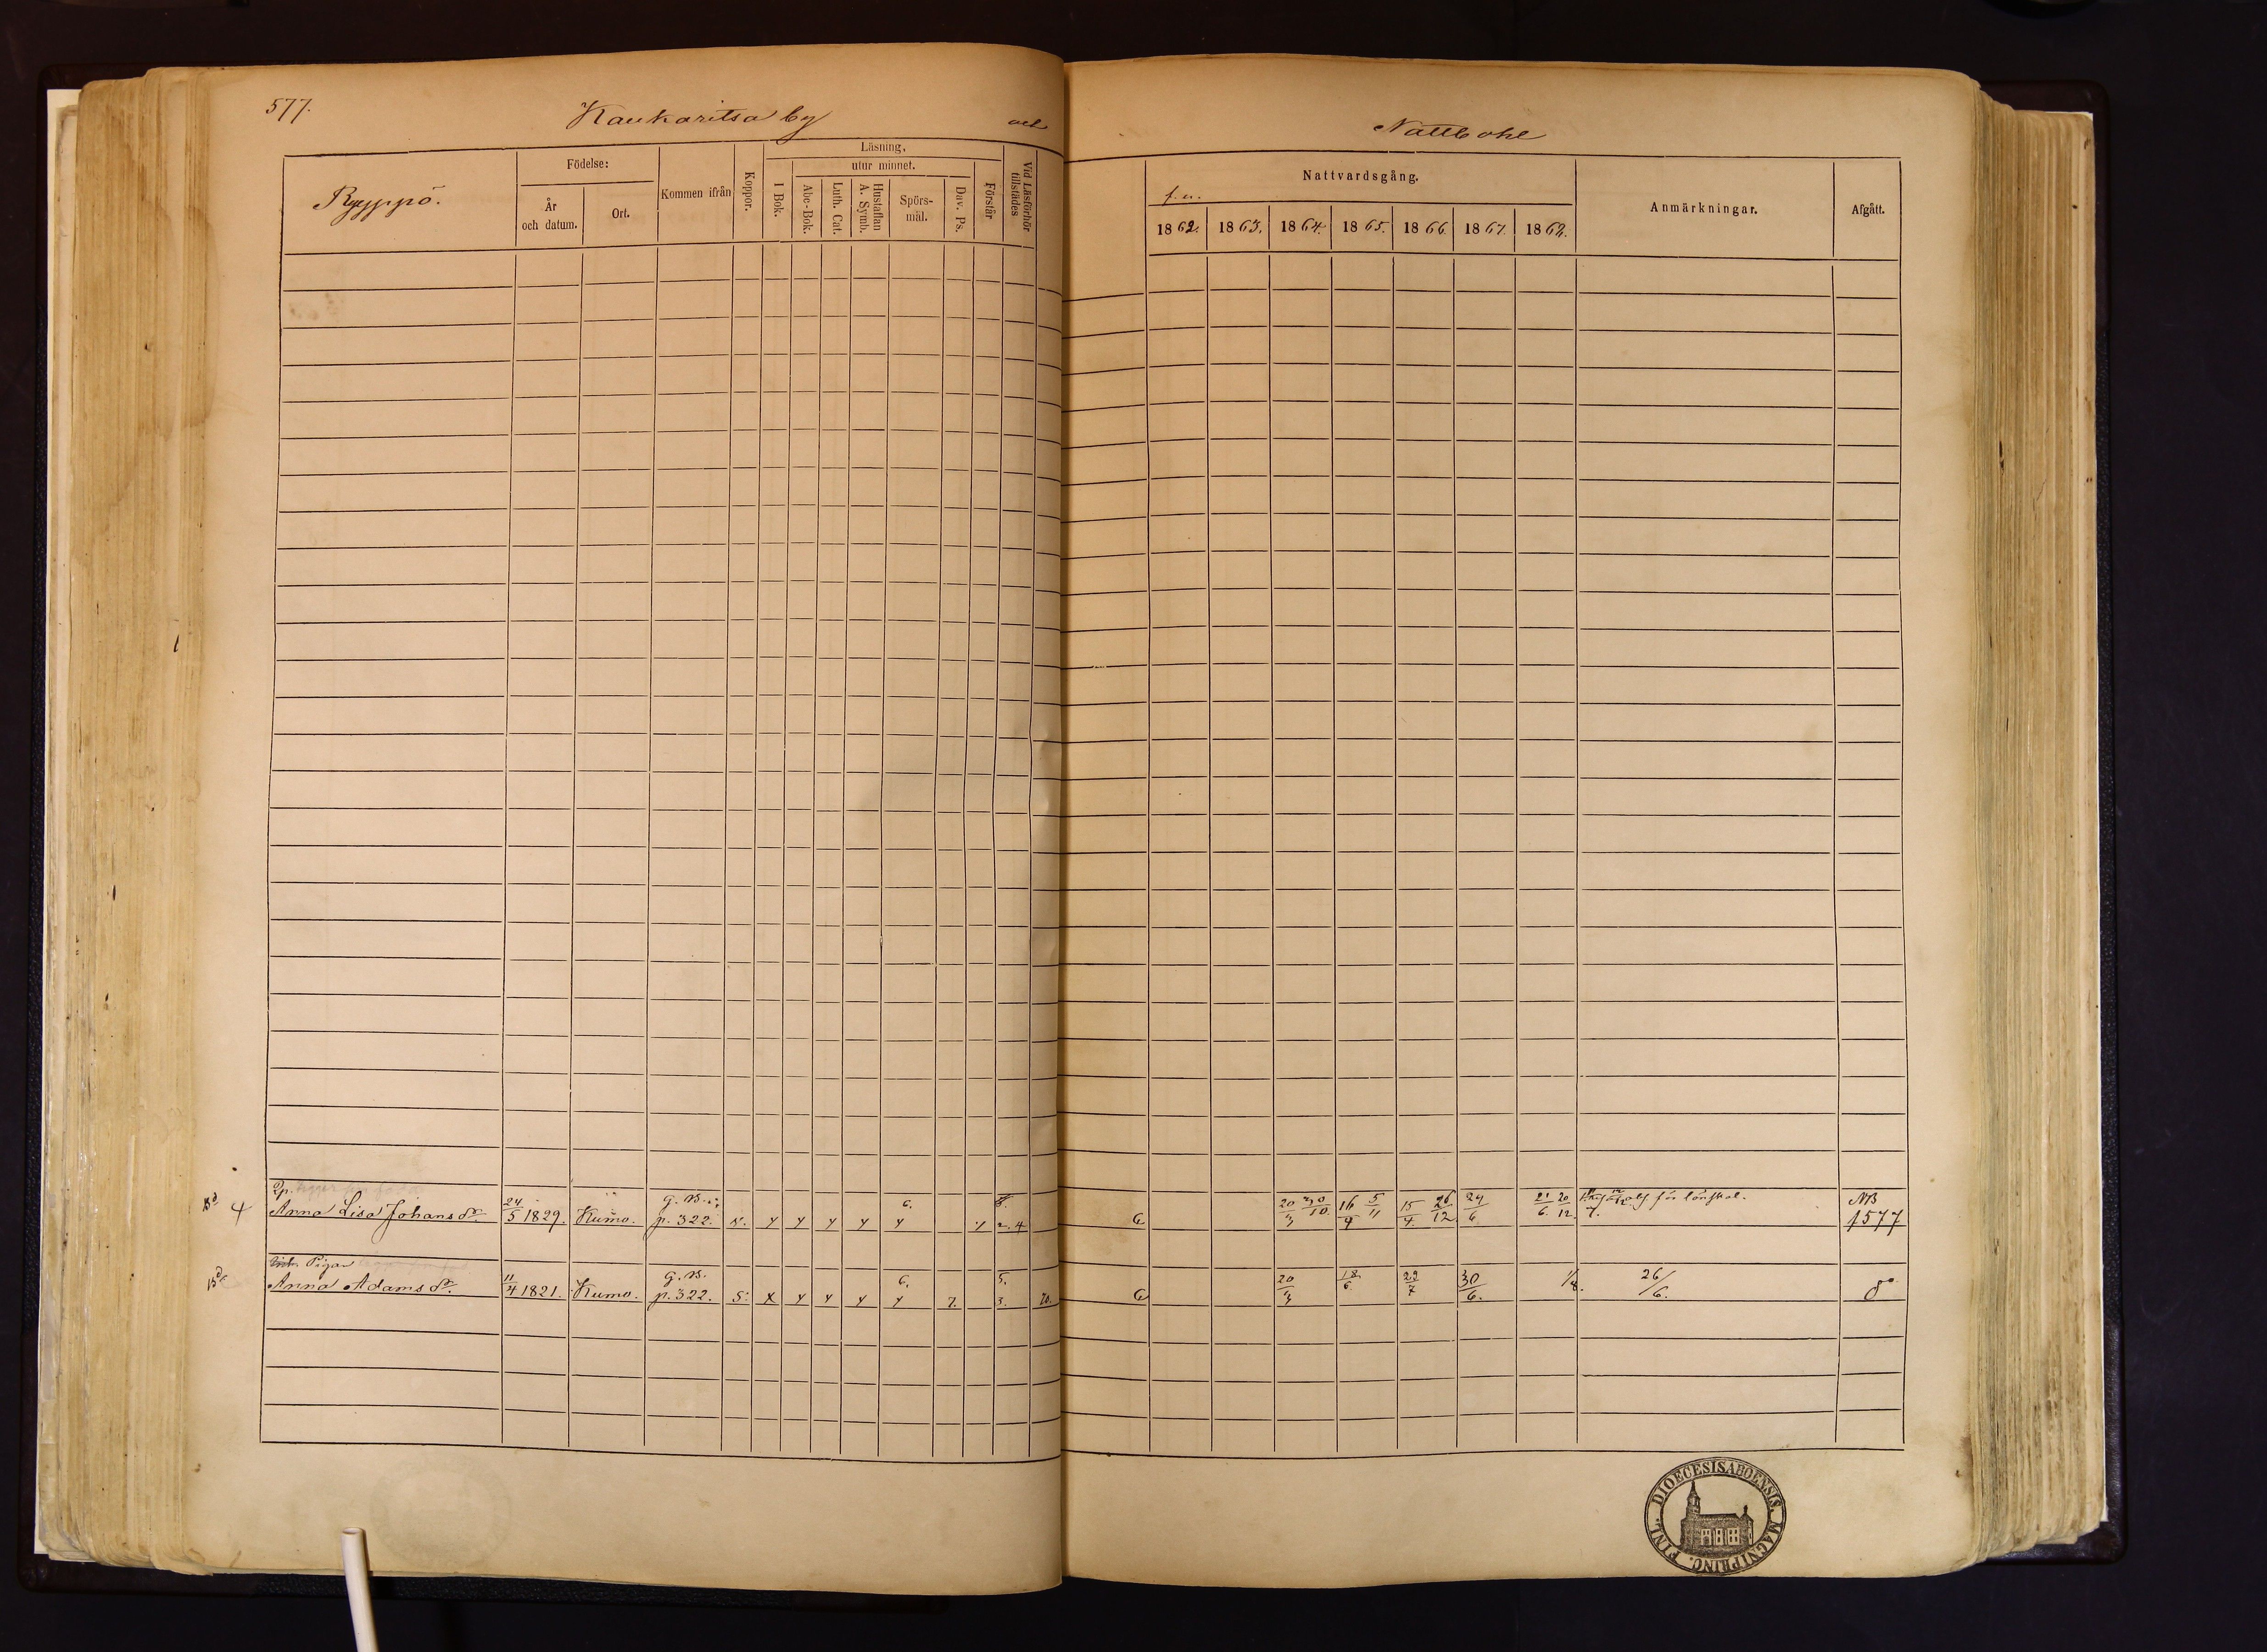 577.
Kaukaritsa by
och
Nättbohl
Ryyppö.
Födelse:
År
och datum.
Ort.
Kommen ifrån
Koppor.
Läsning,
utur minnet.
I Bok.
Abc-Bok.
Luth. Cat.
Hustaflan
A. Symb.
Spörs-
mål.
Dav. Ps.
Förstår
Vid Läsförhör
tillstädes
Nattvardsgång.
f. u.
1862. 1863. 1864. 1865. 1866. 1867. 1868.
Anmärkningar.
Afgått.
4 Anna Lisa Johansdr. 24/5 1829. Kumo. g. B. p. 322. y y y y y 2. 4 20/3 30/10 16/4 5/11 15/4. 26/12 24/6. 21/6. 20/12. för lönskal. NB f 577
Pigan
Anna Adamsdr. 11/4 1821. Kumo. g. B. p. 322. S: x y y y y 7. 5. 3. 20/3 18/6. 22/7 30/6. 1/8. 26/6.
DIOECESIS ABOENSIS. MAGNI PRINC. FINL.